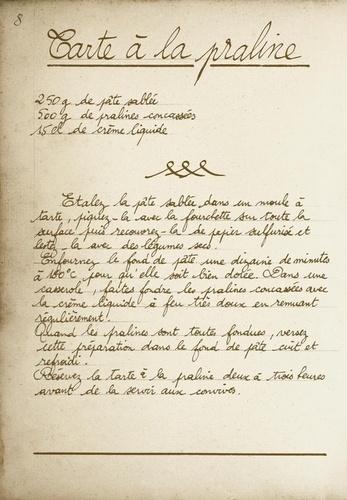 8
Tarte à la praline
250 g de pâte sablée
500 g de pralines concassées
15 cl de crème liquide
Etalez la pâte sablée dans un moule à
tarte, piquez-la avec la fourchette sur toute la
surface puis recouvrez-la de papier sulfurisé et
lestez-la avec des légumes secs.
Enfournez le fond de pâte une dizaine de minutes
à 180°C pour qu'elle soit bien dorée. Dans une
casserole, faites fondre les pralines concassées avec
la crème liquide à feu très doux en remuant
régulièrement.
Quand les pralines sont toutes fondues, versez
cette préparation dans le fond de pâte cuit et
refroidi.
Réservez la tarte à la praline deux à trois heures
avant de la servir aux convives.